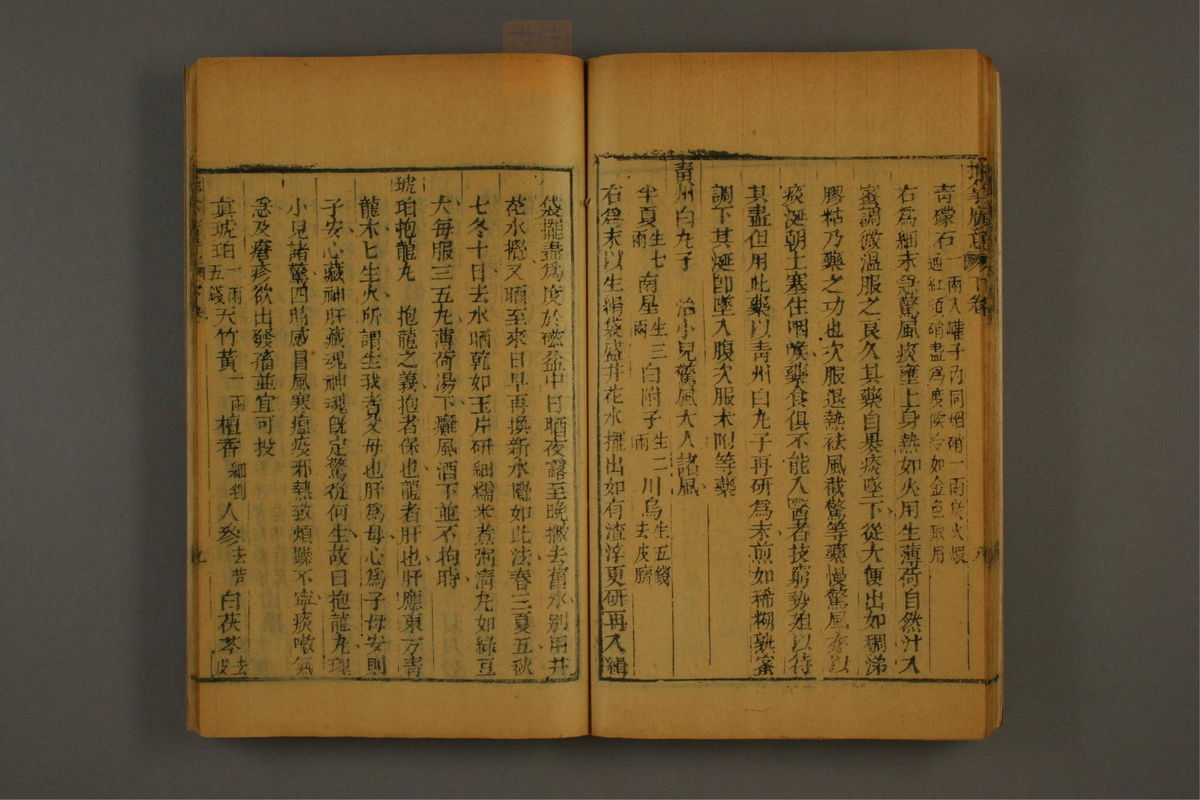 青礞石一兩入罐子內同焰硝一兩炭火煅通紅須硝盡爲度候冷如金色取用
右爲細末急驚風痰壅上身熱如火用生薄荷自然汁入
蜜調微温服之良久其藥自裹痰墜下從大便出如稠涕
膠粘乃藥之功也次服退熱袪風截驚等藥慢驚風亦以
痰涎朝上塞住咽喉藥食俱不能入醫者技窮勢殂以待
其盡但用此藥以青州白丸子再研爲末煎如稀糊熟蜜
調下其涎卽墜入腹次服朮附等藥
青州白丸子　治小兒驚風大人諸風
半夏生七兩　南星生三兩　白附子生二兩　川烏生五錢去皮臍
右爲末以生絹袋盛井花水擺出如有渣滓更研再入絹
袋擺盡爲度於磁盆中日晒夜露至曉撇去舊水別用井
花水攪又晒至來日早再換新水攪如此法春三夏五秋
七冬十日去水晒乾如玉片研細糯米煮粥清丸如綠豆
大每服三五丸薄荷湯下癱風酒下並不拘時
琥珀抱龍丸　抱龍之義抱者保也龍者肝也肝應東方青
龍木木生火所謂生我者父母也肝爲母心爲子母安則
子安心藏神肝藏魂神魂旣定驚從何生故曰抱龍丸理
小兒諸驚四時感冒風寒瘟疫邪熱致煩躁不寧痰嗽氣
急及瘡疹欲出發搐並宜可投
眞琥珀一兩五錢　天竹黃一兩　檀香細剉　人參去芦　白茯苓去皮